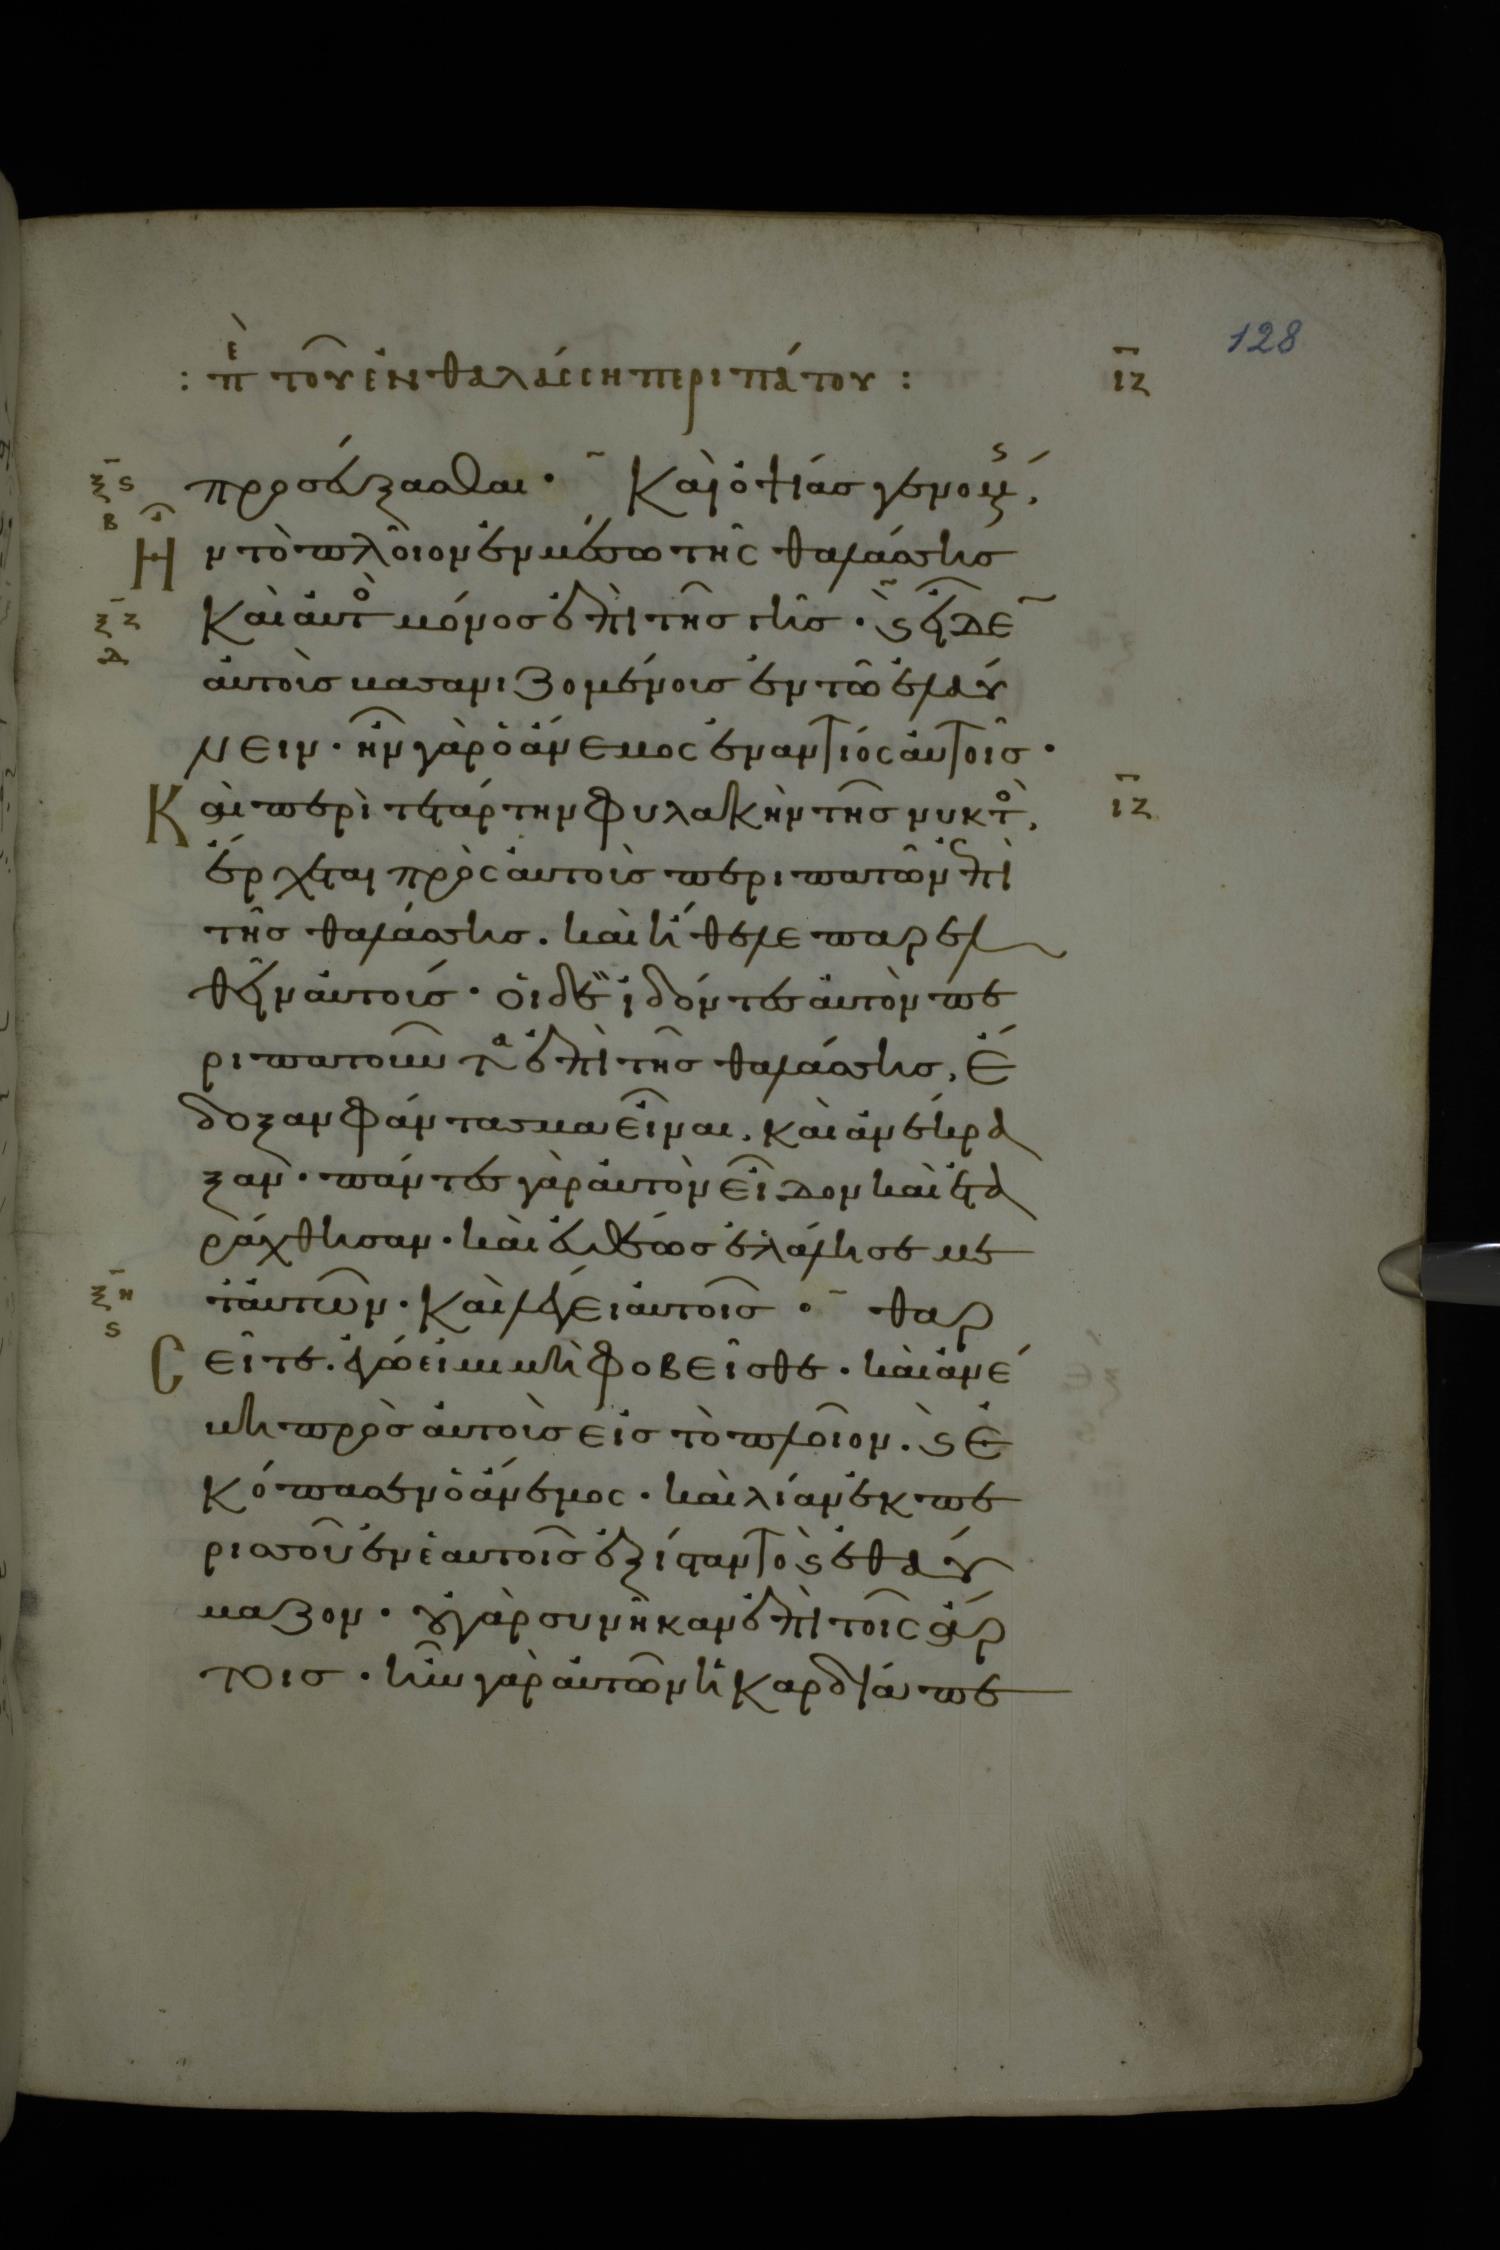 128
: πὲ τοῦ ἐν θαλάσσῃ περιπάτου : ιζ
ξς προσεύξασθαι · Καὶ ὀψίας γενομένης,
β Ἦν τὸ πλοῖον ἐν μέσω τῆς θαλάσσης
ξζ καὶ αὐτὸς μόνος ἐπὶ τῆς γῆς · ϛ εἶδεν
δ αὐτοὺς βασανιζομένους ἐν τῶ ἐλαύ
νειν · ἦν γὰρ ὁ ἄνεμος ἐναντίος αὐτοῖς ·
Καὶ περὶ τετάρτην φυλακὴν τῆς νυκτὸς, ιζ
ἔρχεται πρὸς αὐτοὺς περιπατῶν ἐπὶ
τῆς θαλάσσης. καὶ ἤθελε παρελ
θεῖν αὐτούς · οἱ δὲ ἰδόντες αὐτὸν πε
ριπατοῦντα ἐπὶ τῆς θαλάσσης, ἔ
δοξαν φάντασμα εἶναι, καὶ ἀνέκρα
ξαν · πάντες γὰρ αὐτὸν εἶδον καὶ ἐτα
ράχθησαν · καὶ εὐθέως ἐλάλησε με
ξη τ᾽ αὐτῶν · Καὶ λέγει αὐτοῖς · θαρ
ς
Σεῖτε. ἐγώ εἰμι μὴ φοβεῖσθε · καὶ ἀνέ
βη πρὸς αὐτοὺς εἰς τὸ πλοῖον. ϛ ἐ
κόπασεν ὁ ἄνεμος · καὶ λίαν ἐκ πε
ρισσοῦ ἐν ἑαυτοῖς ἐξίσταντο ϛ ἐθαύ
μαζον · οὐ γὰρ συνῆκαν ἐπὶ τοῖς ἄρ
τοις · ἦν γὰρ αὐτῶν ἡ καρδία πε